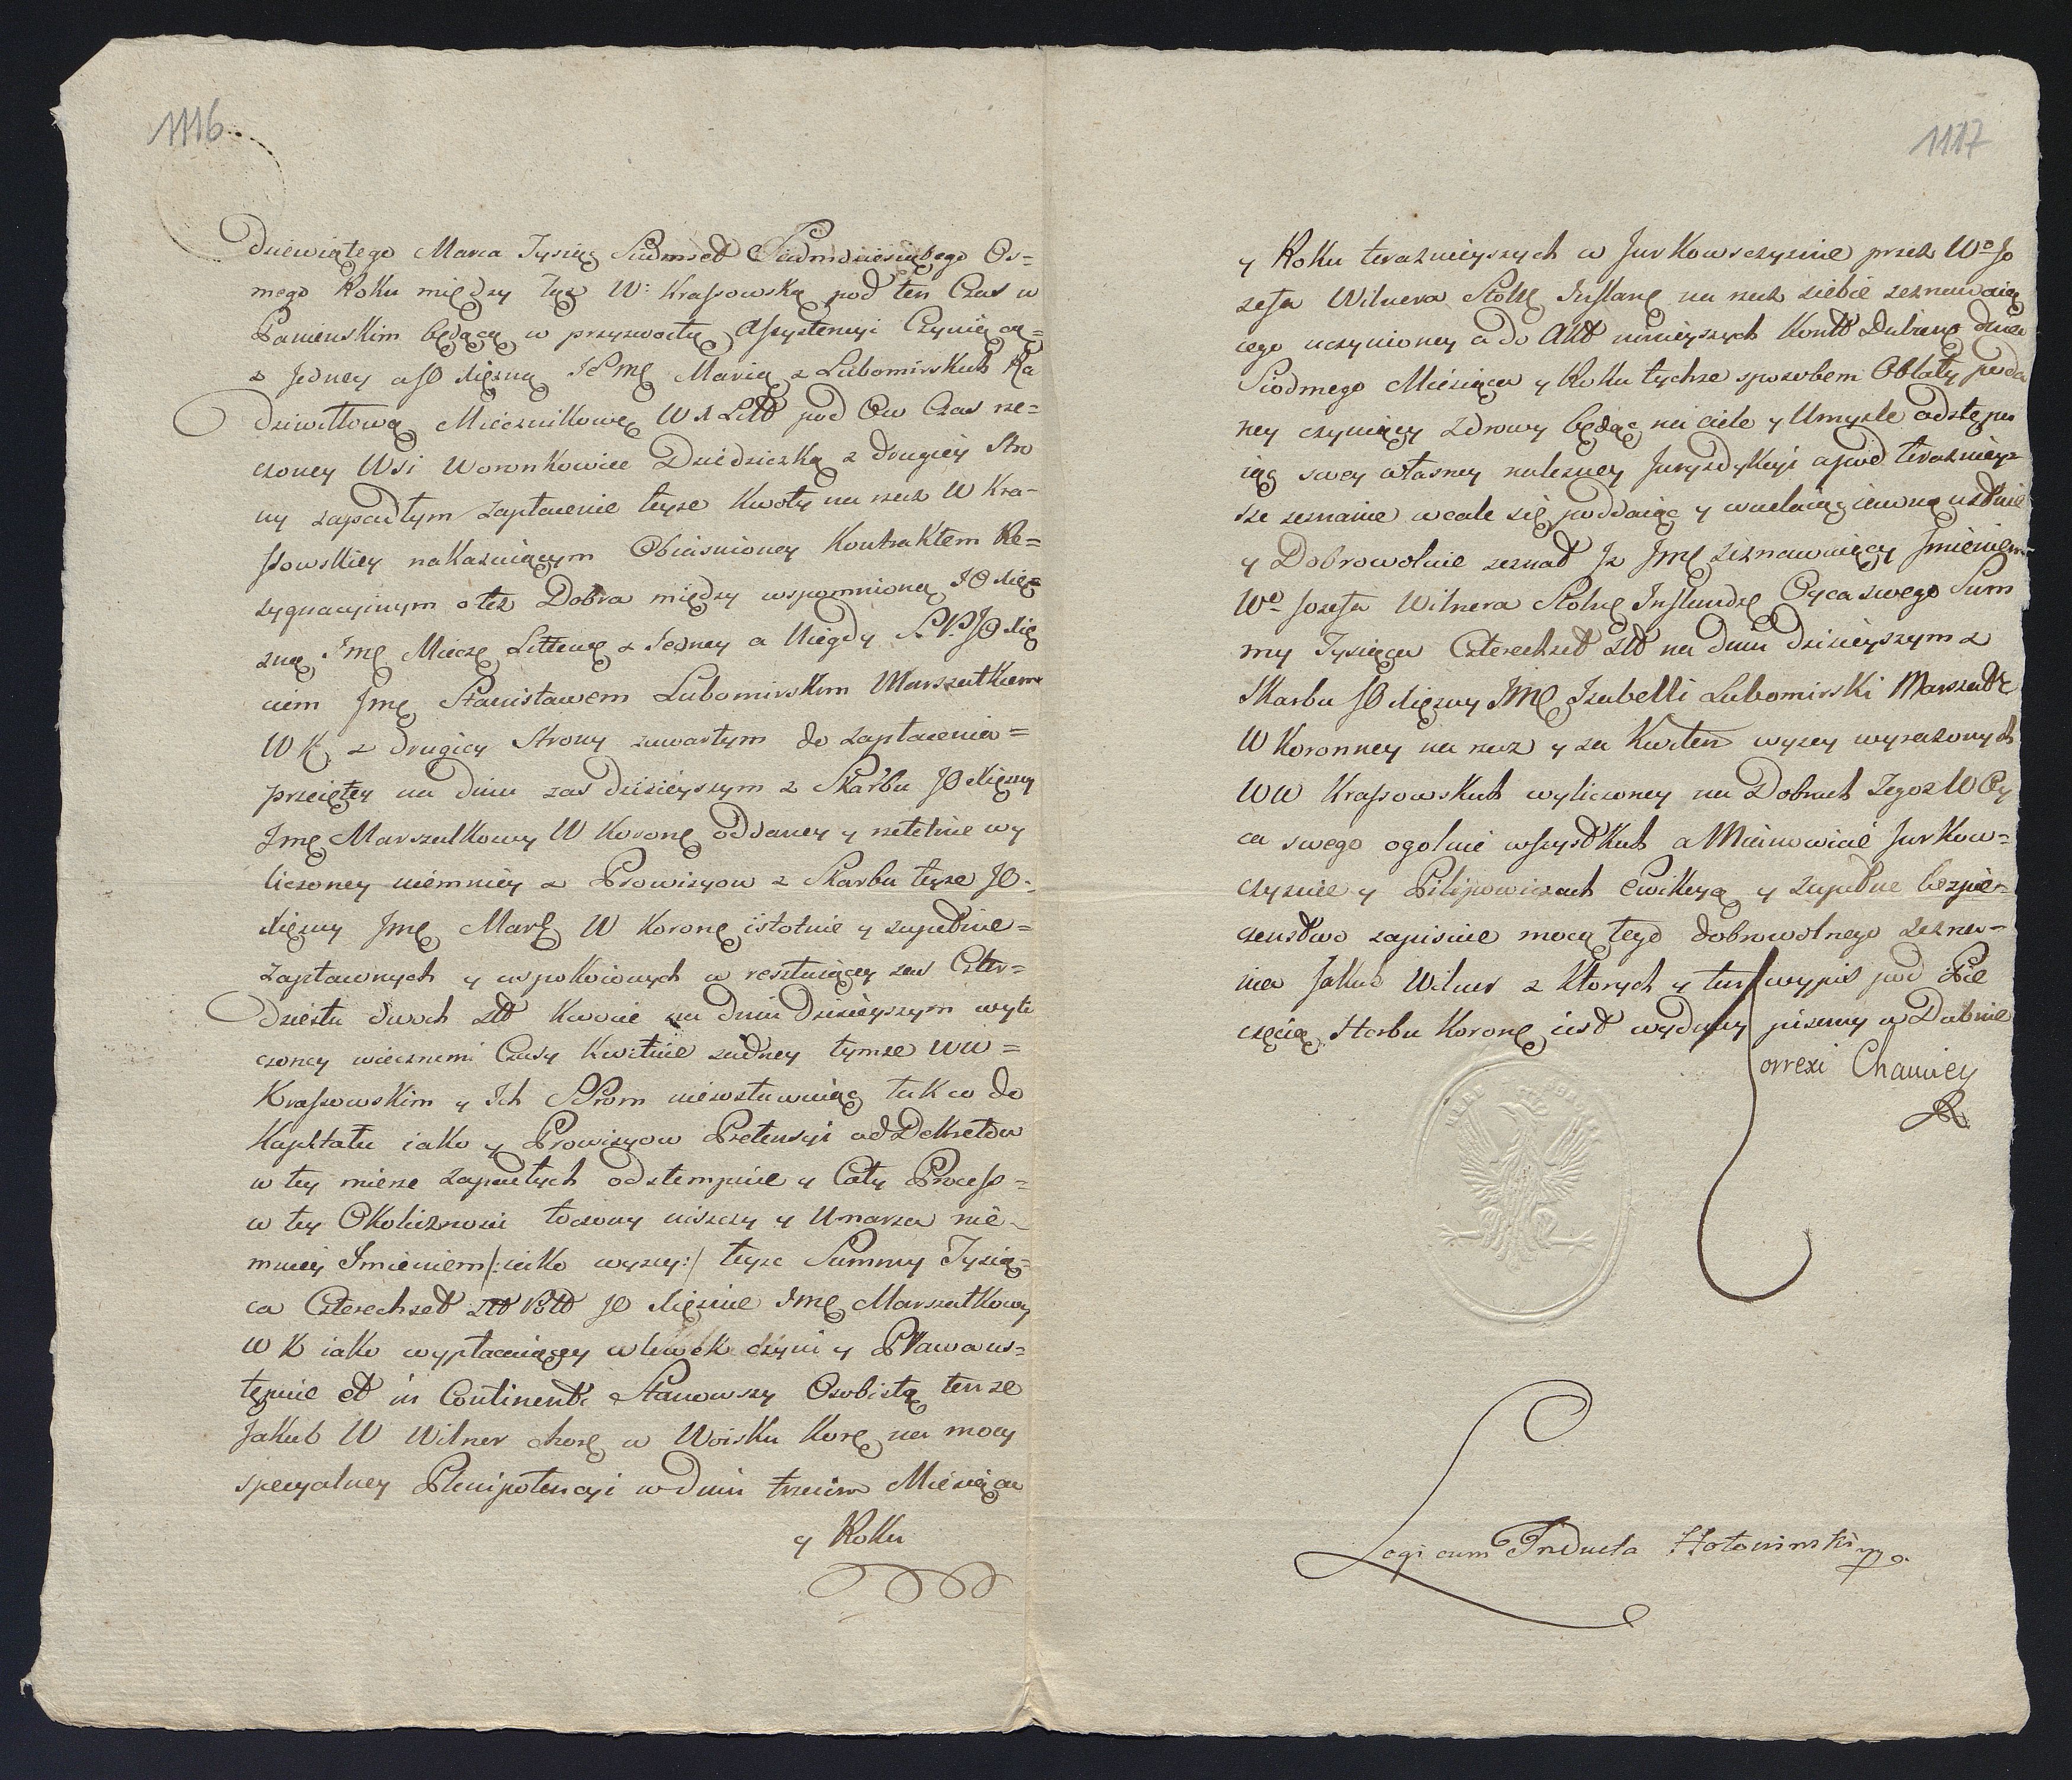 1116
Dziewiątego Marca Tysiąc Siedmset Siedmdziesiątego Os=
mego Roku między Tąż W: Krassowską pod ten Czas w
Panieńskim będącą w przyzwoitey Assystencyi Czyniącą=
z Jedney a JO Xiężną JeMę Marią z Lubomirskich Ra
dziwiłłową Miecznikową W X Litt pod Ow Czas rze=
czoney Wsi Woronkowiec Dziedziczką z drugiey Stro
ny zapadłym zapłacenie teyże Kwoty na rzecz W Kra-
ssowskiey nakazuiącym Obiaśnioney Kontraktem Re=
zygnacyinym o też Dobra między wspomnioną JO Xię=
zną Jmę Miecz Litteue z Jedney a Niegdy S.P. JO Xię
ciem Jmę Stanisławem Lubomirskim Marszałkiem
W K z drugiey Strony zawartym do zapłacenia=
przeiętey na dniu zas dzisieyszym z Skarbu JO Xiężny
Jmę Marszałkowy W Koronę oddaney y rzetelnie wy
liczoney niemniey z Prowizyow z Skarbu teyże JO.
Xiężny Jmę Marsz W Koronę istotnie y zupełnie=
Zapłaconych y uspokoionych w resztuiącey zas Czter=
dziestu dwoch złł Kwocie na dniu dzisieyszym wyli
czoney wiecznemi Czasy Kwituie żadney tymże WW=
Krassowskim y Ich SSrom niezostawuiąc tak co do
Kapitału iako y Prowizyow Pretensyi od Dekretow
w tey mierze zapadłych odstempuie y Cały Process=
w tey Okoliczności toczony niszczy y Umarza nie-
mniey Imieniem /:iako wyżey:/ teyże Summy Tysią=
ca Czterechset złł Pol JO Xiężnie Jmę Marszałkowy
W K iako wypłacaiącey wlewek czyni y Prawa us=
tępuie et in Continenti Stanowszy Osobiście tenże
Jakub W Wilner chorę w Woisku Korę na mocy
specyalney Plenipotencyi w dniu trzecim Miesiąca
y Roku
1117
y Roku teraznieyszych w Jurkowszczyznie przez Wo Jo
zefa Wilnera Stolę Inflanę na rzecz siebie zeznawaią
cego uczynioney a do Akt ninieyszych Kontt Dubień dnia
Siodmego Miesiąca y Roku tychże sposobem Oblaty poda
ney czyniący Zdrowy będąc na ciele y Umyśle odstępu
iąc swey własney należney Juryzdykcyi a pod teraźniey=
sze zeznanie wcale się poddaiąc y wcielaiąc iawnie ustnie
y Dobrowolnie zeznał Iz Jmę zeznawaiący Imieniem
Wo Jozefa Wilnera Stolnę Inflandzę Oyca swego Sum
my Tysiąca Czterechset złł na dniu dzisieyszym z
Skarbu JO Xiężny JMę Izabelli Lubomirski Marszałk
W Koronney na rzecz y za Kwitem wyżey wyrażonych
WW Krassowskich wyliczoney na Dobrach Tegoż W Oy
ca swego ogolnie wszystkich a Mianowicie Jurkow=
czyznie y Pilipowiczach Ewikcyą y zupełne bezpie=
czeństwo zapisuie mocą tego dobrowolnego zezna=
nia Jakub Wilner z ktorych y ten wypis pod Pie
częcią Herbu Koronę iest wydany pisany w Dubnie
Correxi
Legi cum Inducta Hołowinski mp